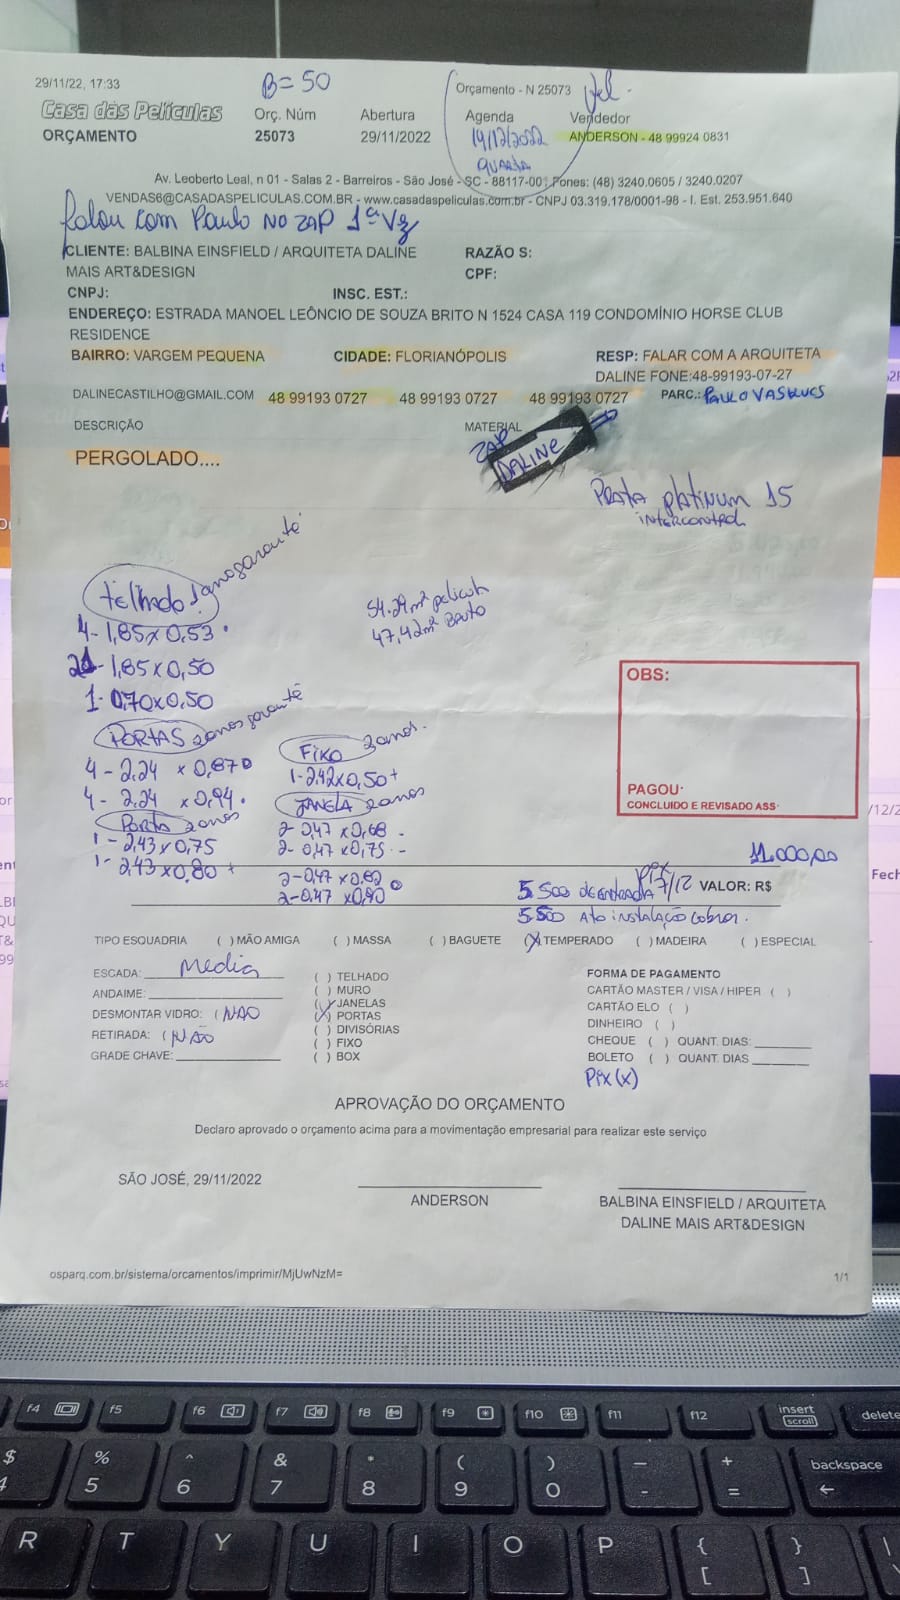 29/11/22, 17:33
B=50
Orçamento - N 25073
Casa das Películas
Orç. Núm
Abertura
Agenda
Vendedor
ORÇAMENTO
25073
29/11/2022
14/12/2022
ANDERSON - 48 99924 0831
QUARTA
Av. Leoberto Leal, n 01 - Salas 2 - Barreiros - São José - SC - 88117-001 Fones: (48) 3240.0605 / 3240.0207
VENDAS6@CASADASPELICULAS.COM.BR - www.casadaspeliculas.com.br - CNPJ 03.319.178/0001-98 - I. Est. 253.951.640
falou com Paulo NO ZAP 1ª Vz
CLIENTE: BALBINA EINSFIELD / ARQUITETA DALINE
MAIS ART&DESIGN
RAZÃO S:
CPF:
CNPJ:
INSC. EST.:
ENDEREÇO: ESTRADA MANOEL LEÔNCIO DE SOUZA BRITO N 1524 CASA 119 CONDOMÍNIO HORSE CLUB
RESIDENCE
BAIRRO: VARGEM PEQUENA
CIDADE: FLORIANÓPOLIS
RESP: FALAR COM A ARQUITETA
DALINE FONE:48-99193-07-27
DALINECASTILHO@GMAIL.COM
48 99193 0727
48 99193 0727
48 99193 0727
PARC.: PAULO
DESCRIÇÃO
MATERIAL
ZAP
DALINE
PERGOLADO....
PRATA platinum 15
INTERCONTROL
telhado 1 ano garantê
4- 1,85 x 0,53
21- 1,85 x 0,50
1- 0,70 x 0,50
54.29m² pelicula
47,42m² BRUTO
OBS:
PAGOU:
CONCLUIDO E REVISADO ASS:
PORTAS 2 anos garantê
4 - 2,24 x 0,87
4 - 2,24 x 0,94
PORTA 2 anos
1 - 2,43 x 0,75
1 - 2,43 x 0,80
FIXO 2 anos.
1- 2,42 x 0,50
JANELA 2 anos
2- 0,47 x 0,68
2- 0,47 x 0,75
2- 0,47 x 0,82
2- 0,47 x 0,90
11.000,00
Pix
5.500 de entrada 7/12 VALOR: R$
5.500 Ato instalação cobrar.
TIPO ESQUADRIA ( ) MÃO AMIGA ( ) MASSA ( ) BAGUETE (X) TEMPERADO ( ) MADEIRA ( ) ESPECIAL
ESCADA: Media
ANDAIME:
DESMONTAR VIDRO: ( NÃO
RETIRADA: ( NÃO
GRADE CHAVE:
( ) TELHADO
( ) MURO
(✓) JANELAS
(X) PORTAS
( ) DIVISÓRIAS
( ) FIXO
( ) BOX
FORMA DE PAGAMENTO
CARTÃO MASTER / VISA / HIPER ( )
CARTÃO ELO ( )
DINHEIRO ( )
CHEQUE ( ) QUANT. DIAS:
BOLETO ( ) QUANT. DIAS
Pix (x)
APROVAÇÃO DO ORÇAMENTO
Declaro aprovado o orçamento acima para a movimentação empresarial para realizar este serviço
SÃO JOSÉ, 29/11/2022
ANDERSON
BALBINA EINSFIELD / ARQUITETA
DALINE MAIS ART&DESIGN
osparq.com.br/sistema/orcamentos/imprimir/MjUwNzM=
1/1
f4 f5 f6 f7 f8 f9 f10 f11 f12 insert delete
scroll
$ % ^ & * ( ) _ + backspace
4 5 6 7 8 9 0 - = ←
R T Y U I O P { } |
[ ]